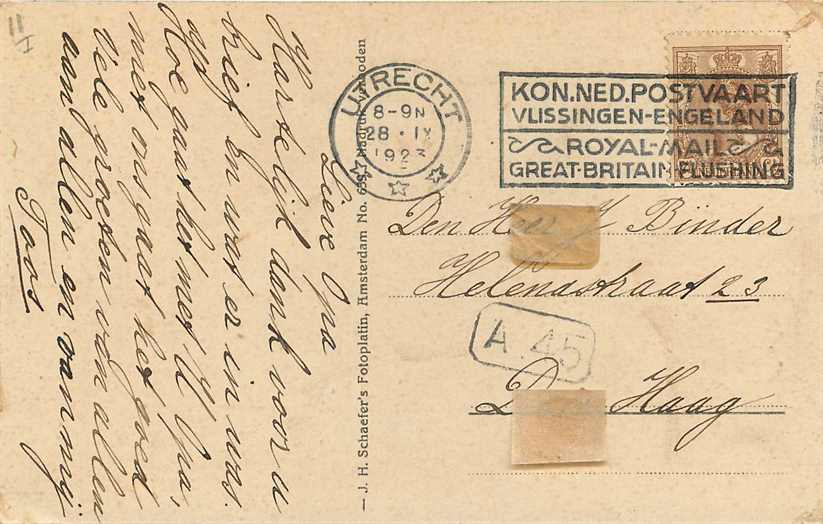 Lieve Opa
Hartelijk dank voor u
brief en wat er in was.
Hoe gaat het met U Opa,
met ons gaat het goed
Vele groeten van allen
aan allen en van mij
Toos.
II
I
J. H. Schaefer's Fotoplatin, Amsterdam No. Nadruk verboden
UTRECHT
8-9N
28 · IX
1923
KON. NED. POSTVAART
VLISSINGEN-ENGELAND
ROYAL-MAIL
GREAT-BRITAIN-FLUSHING
Den Heer J Binder
Helenastraat 23
A 45
Den Haag